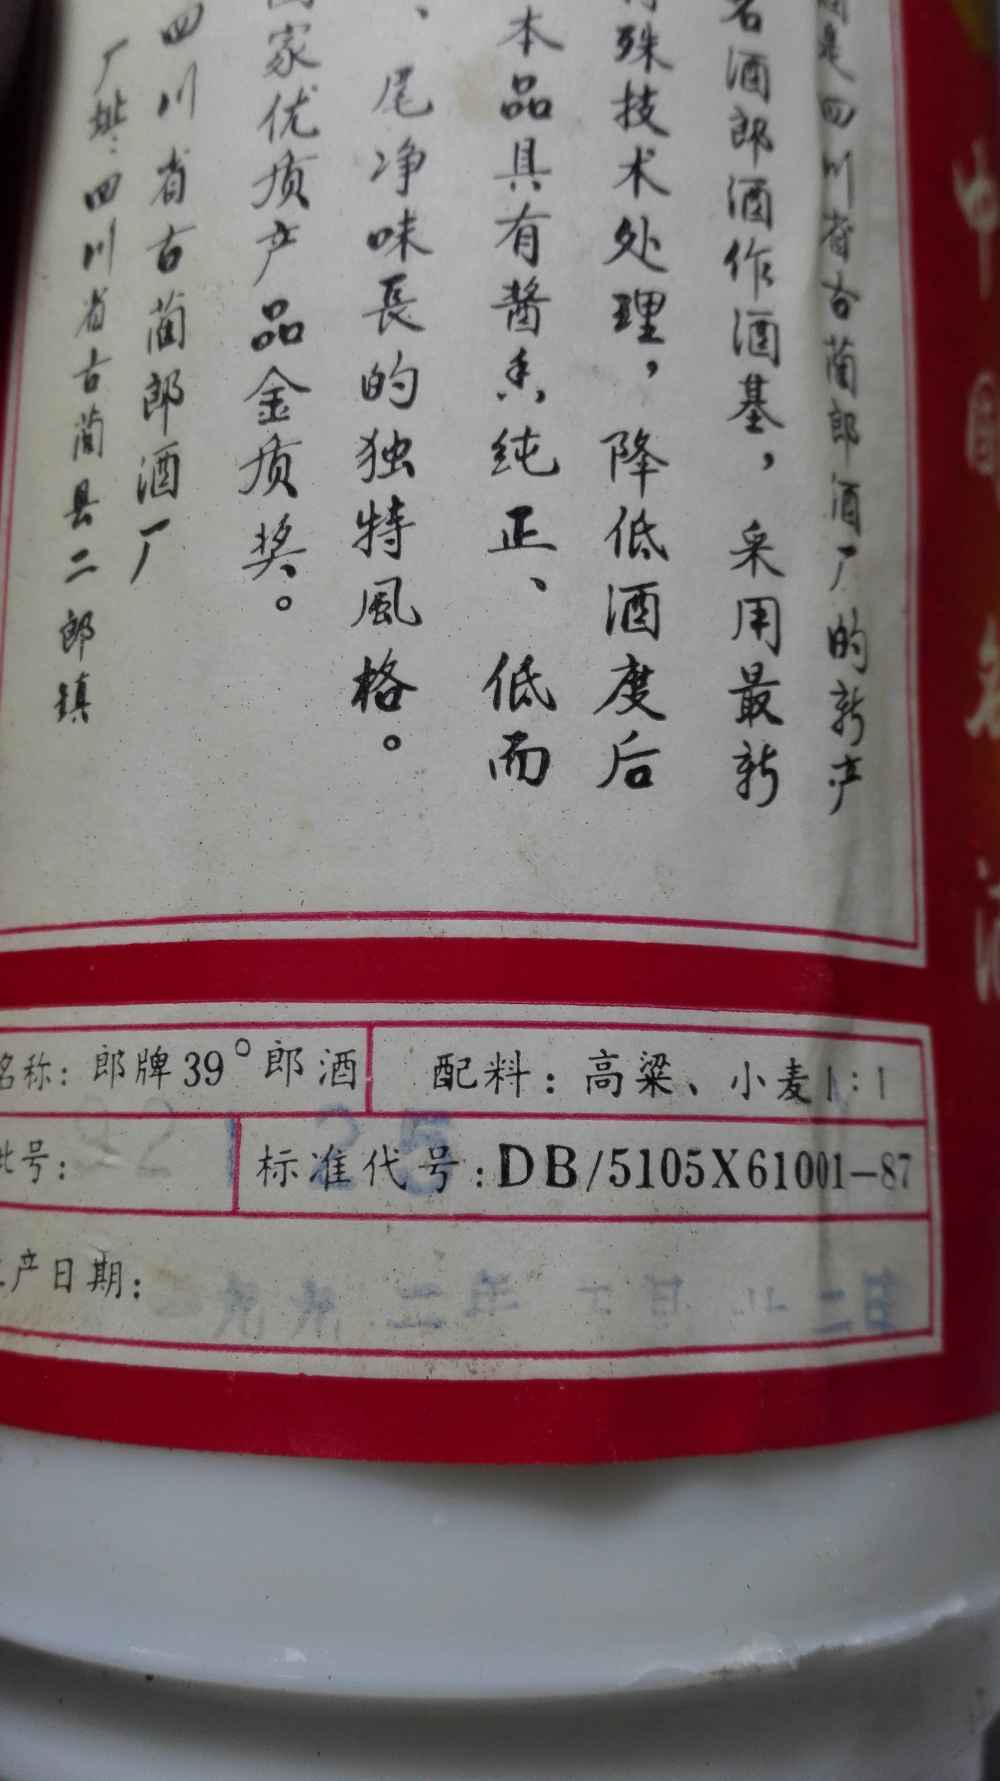 是四川省古蔺郎酒厂的新产
名酒郎酒作酒基，采用最新
特殊技术处理，降低酒度后
本品具有醬香纯正、低而
、尾净味長的独特風格。
国家优质产品金质奖。
四川省古蔺郎酒厂
厂址：四川省古蔺县二郎镇
中國名酒
名称：郎牌39°郎酒
配料：高粱、小麦1:1
批号：
92 1 25
标准代号：DB/5105X61001-87
生产日期：
一九九二年 十月 廿二日